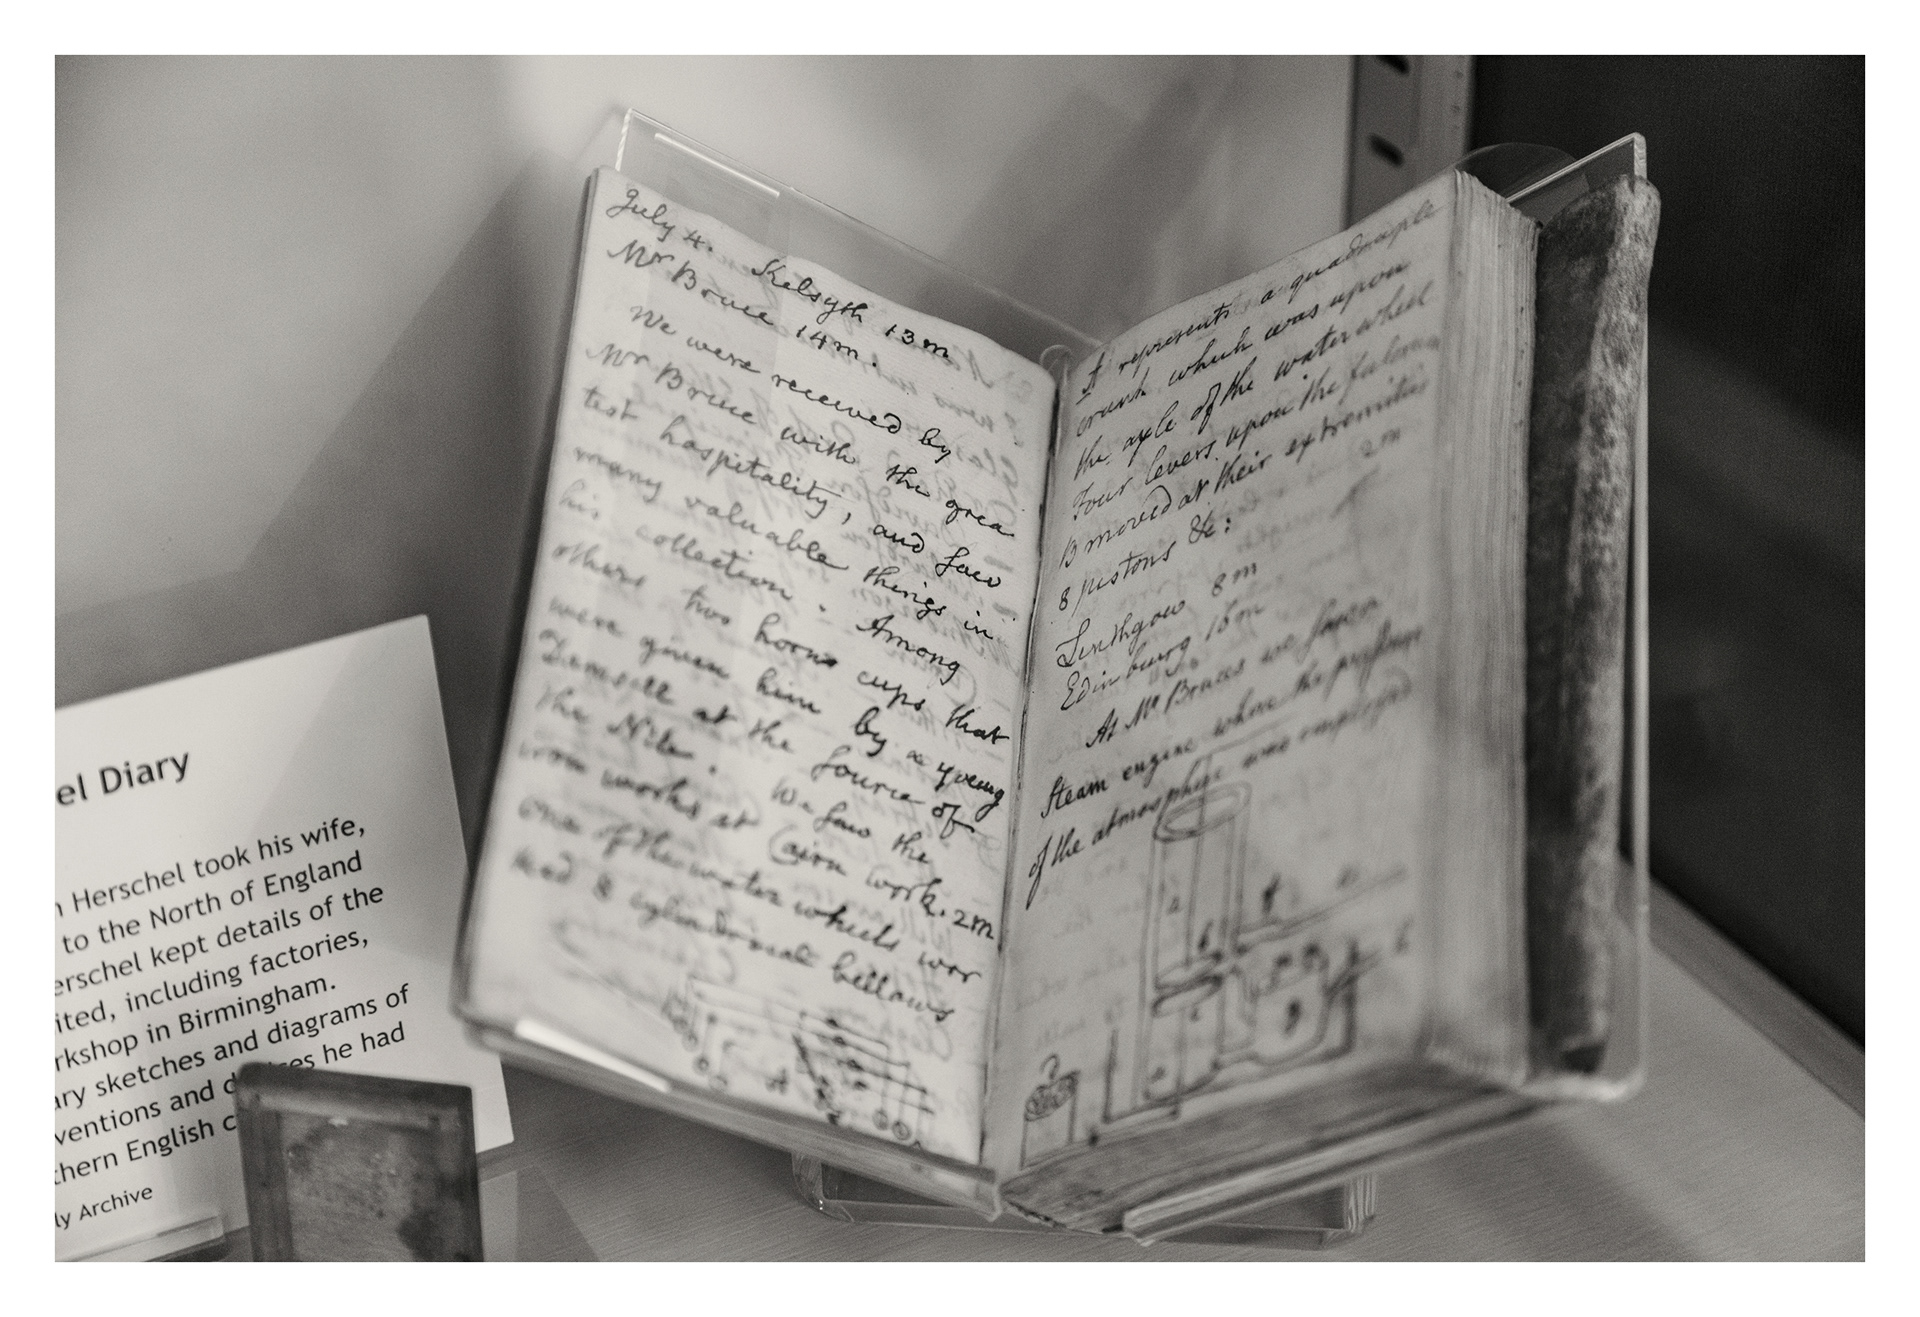 July 4. Kelsyth 13m
Mr Bruce 14m.
We were received by
Mr Bruce with the grea
test hospitality, and saw
many valuable things in
his collection. Among
others two horns cups that
were given him by a young
Damsell at the source of
the Nile. We saw the
iron works at Cairn work. 2m
one of the water wheels wor
ked 8 cylindrical bellows
A
A represents a quadruple
crank which was upon
the axle of the water wheel
Four levers upon the
B moved at their extremities
8 pistons &c: 2m
Linthgow 8m
Edinburg 16m
At Mr Bruces we saw a
Steam engine where the pressure
of the atmosphere was employed
el Diary
Herschel took his wife,
to the North of England
erschel kept details of the
ited, including factories,
rkshop in Birmingham.
ary sketches and diagrams of
ventions and he had
thern English c
ly Archive